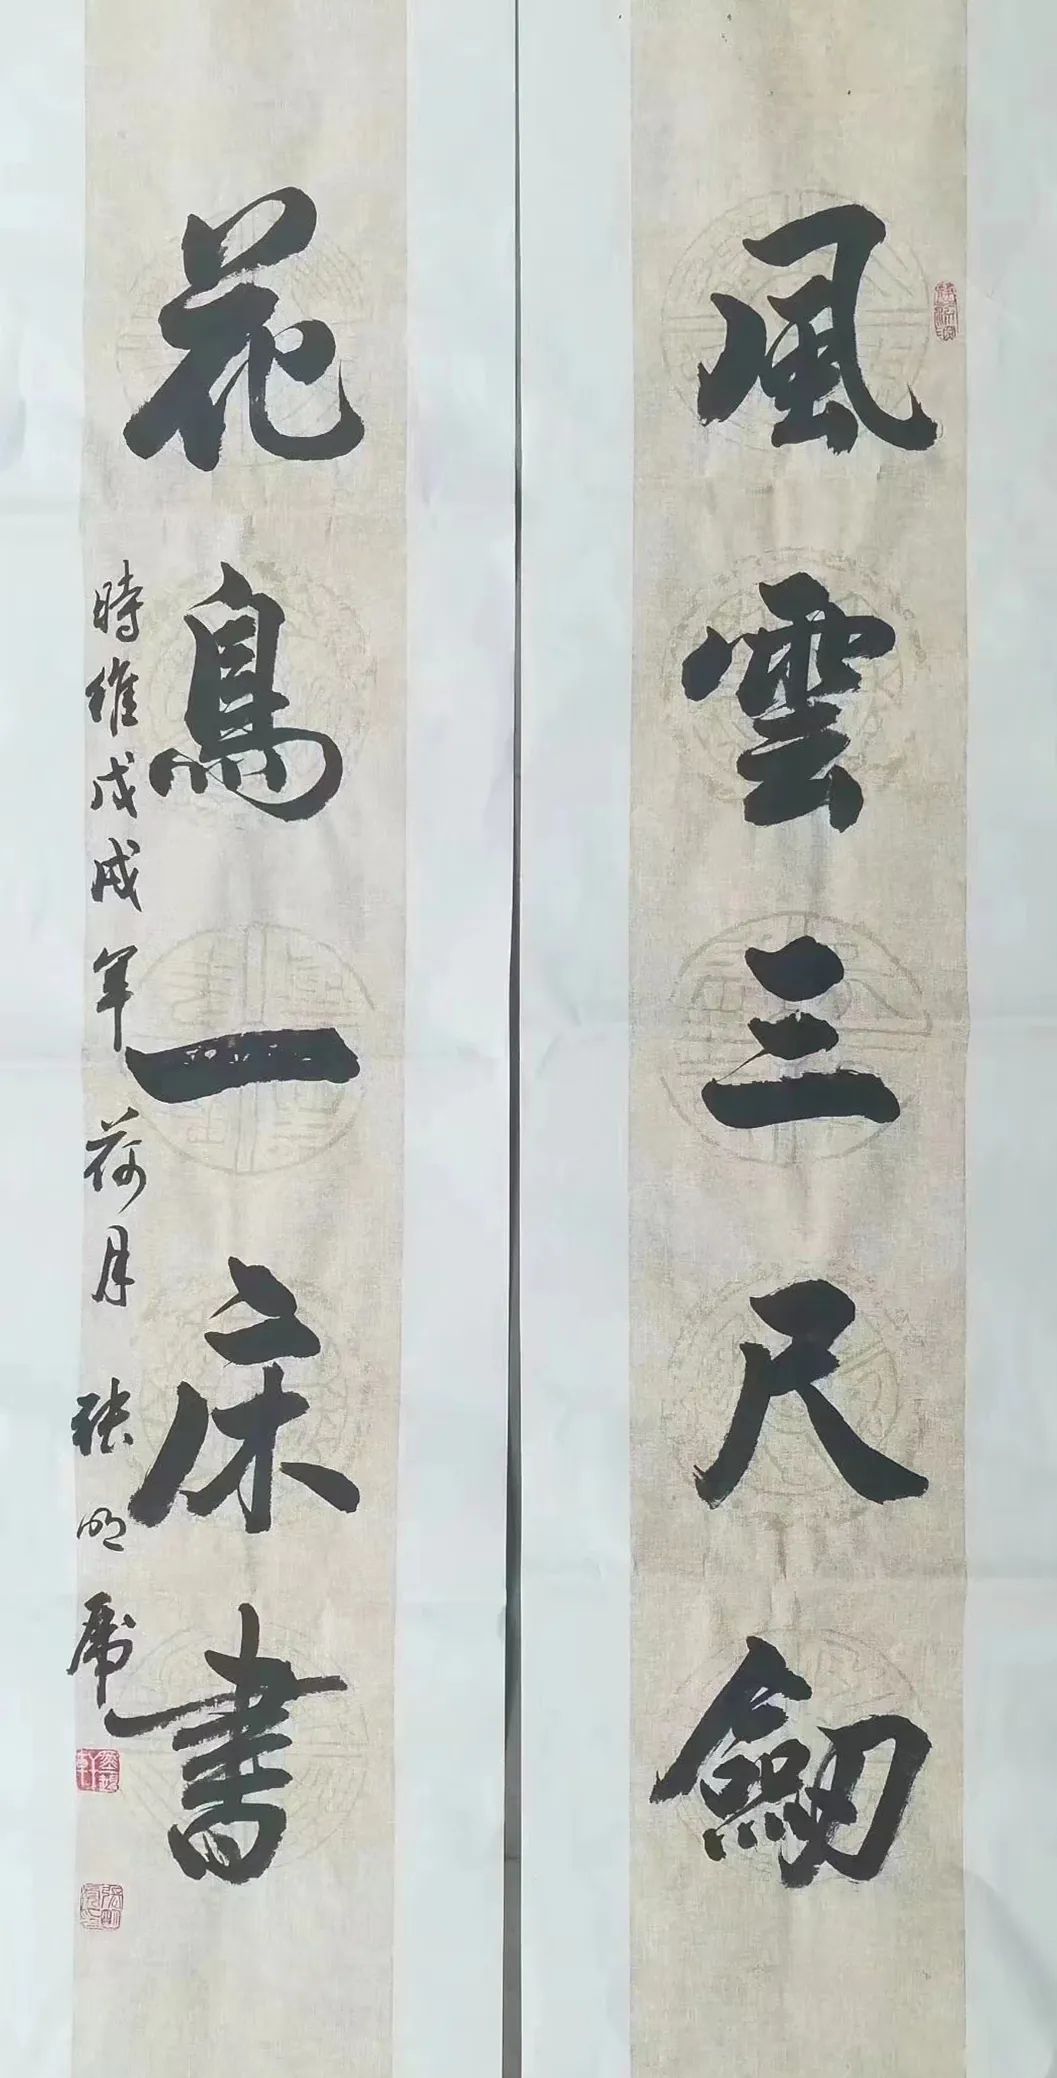 風雲三尺劒
花鳥一床書
時維戊戌年荷月張明虎